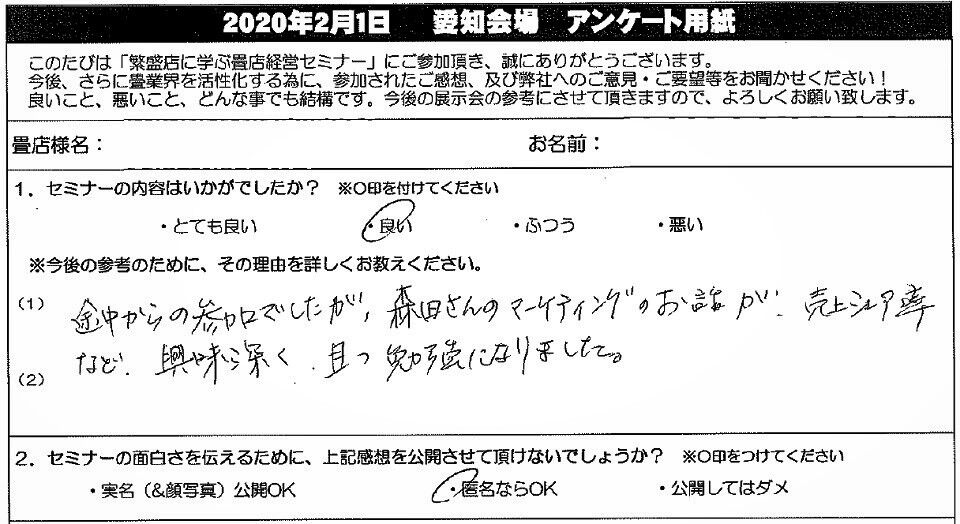 2020年2月1日 愛知会場 アンケート用紙
このたびは「繁盛店に学ぶ畳店経営セミナー」にご参加頂き、誠にありがとうございます。
今後、さらに畳業界を活性化する為に、参加されたご感想、及び弊社へのご意見・ご要望等をお聞かせください！
良いこと、悪いこと、どんな事でも結構です。今後の展示会の参考にさせて頂きますので、よろしくお願い致します。
畳店様名： お名前：
1．セミナーの内容はいかがでしたか？ ※〇印を付けてください
・とても良い ・良い ・ふつう ・悪い
※今後の参考のために、その理由を詳しくお教えください。
(1) 途中からの参加でしたが、森田さんのマーケティングのお話が、売上シェア率
など、興味深く、且つ勉強になりました。
(2)
2．セミナーの面白さを伝えるために、上記感想を公開させて頂けないでしょうか？ ※〇印をつけてください
・実名（&顔写真）公開OK ・匿名ならOK ・公開してはダメ